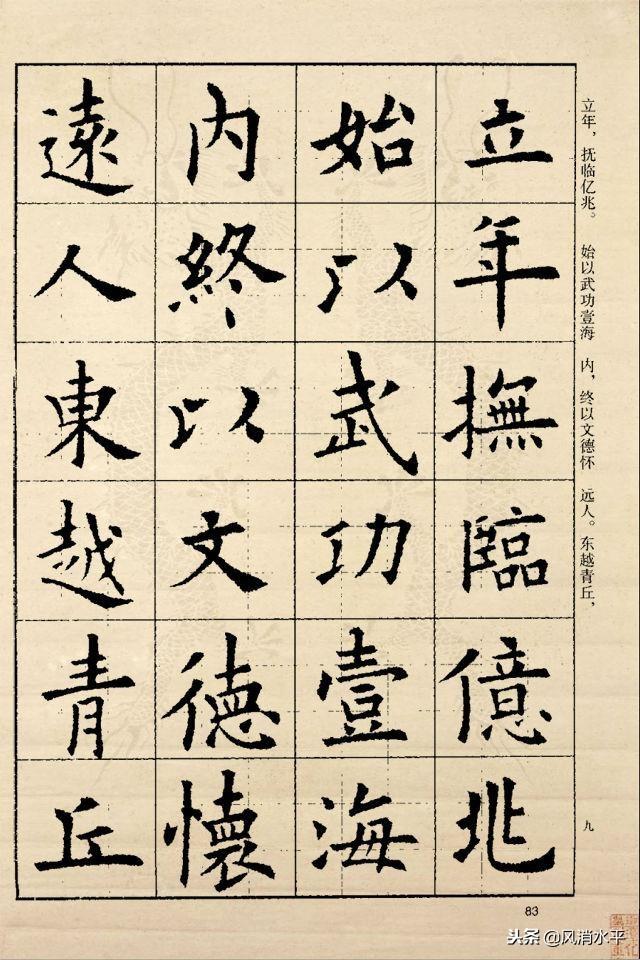 立年撫臨億兆
始以武功壹海
内終以文德懷
遠人東越青丘
立年，抚临亿兆。 始以武功壹海 内，终以文德怀 远人。东越青丘，
九
83
头条@风消水平